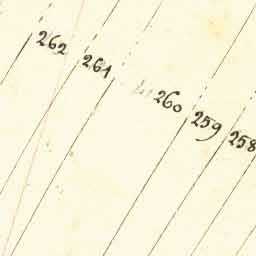 262 261 260 259 258